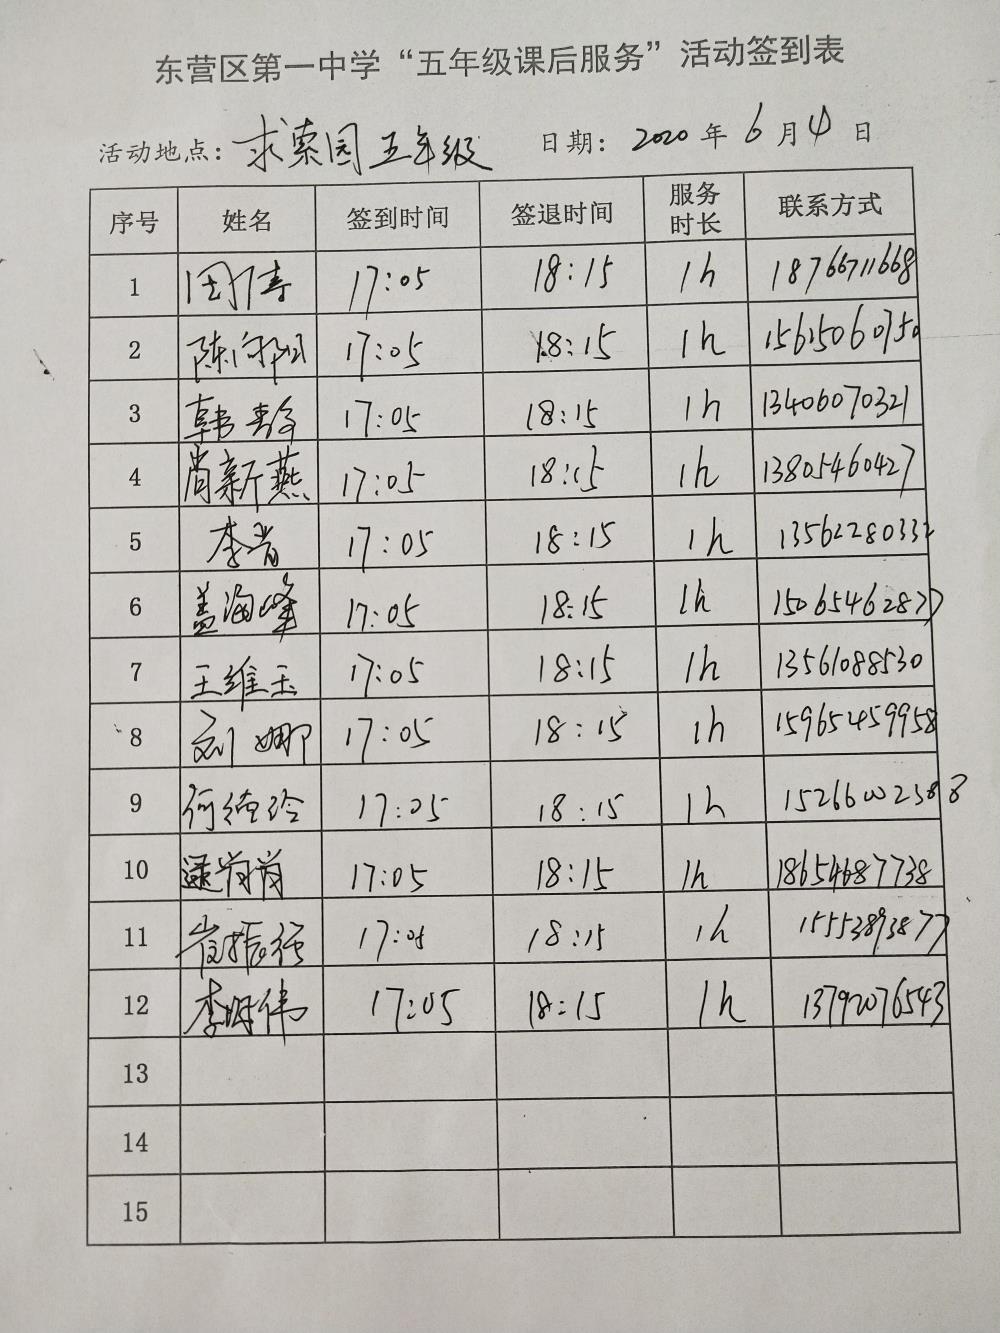 东营区第一中学“五年级课后服务”活动签到表
活动地点：求索园五年级 日期：2020年6月4日
序号 姓名 签到时间 签退时间 服务时长 联系方式
1 17:05 18:15 1h 18766711668
2 陈 17:05 18:15 1h 15615060750
3 韩 17:05 18:15 1h 13406070321
4 尚新燕 17:05 18:15 1h 13805460427
5 李肖 17:05 18:15 1h 13562280332
6 盖海峰 17:05 18:15 1h 15065462877
7 王维玉 17:05 18:15 1h 13561088530
8 刘娜 17:05 18:15 1h 15965459958
9 何德玲 17:05 18:15 1h
10 逯肖肖 17:05 18:15 1h 18654687738
11 崔振强 17:05 18:15 1h 15553893877
12 李明伟 17:05 18:15 1h 13792076543
13
14
15